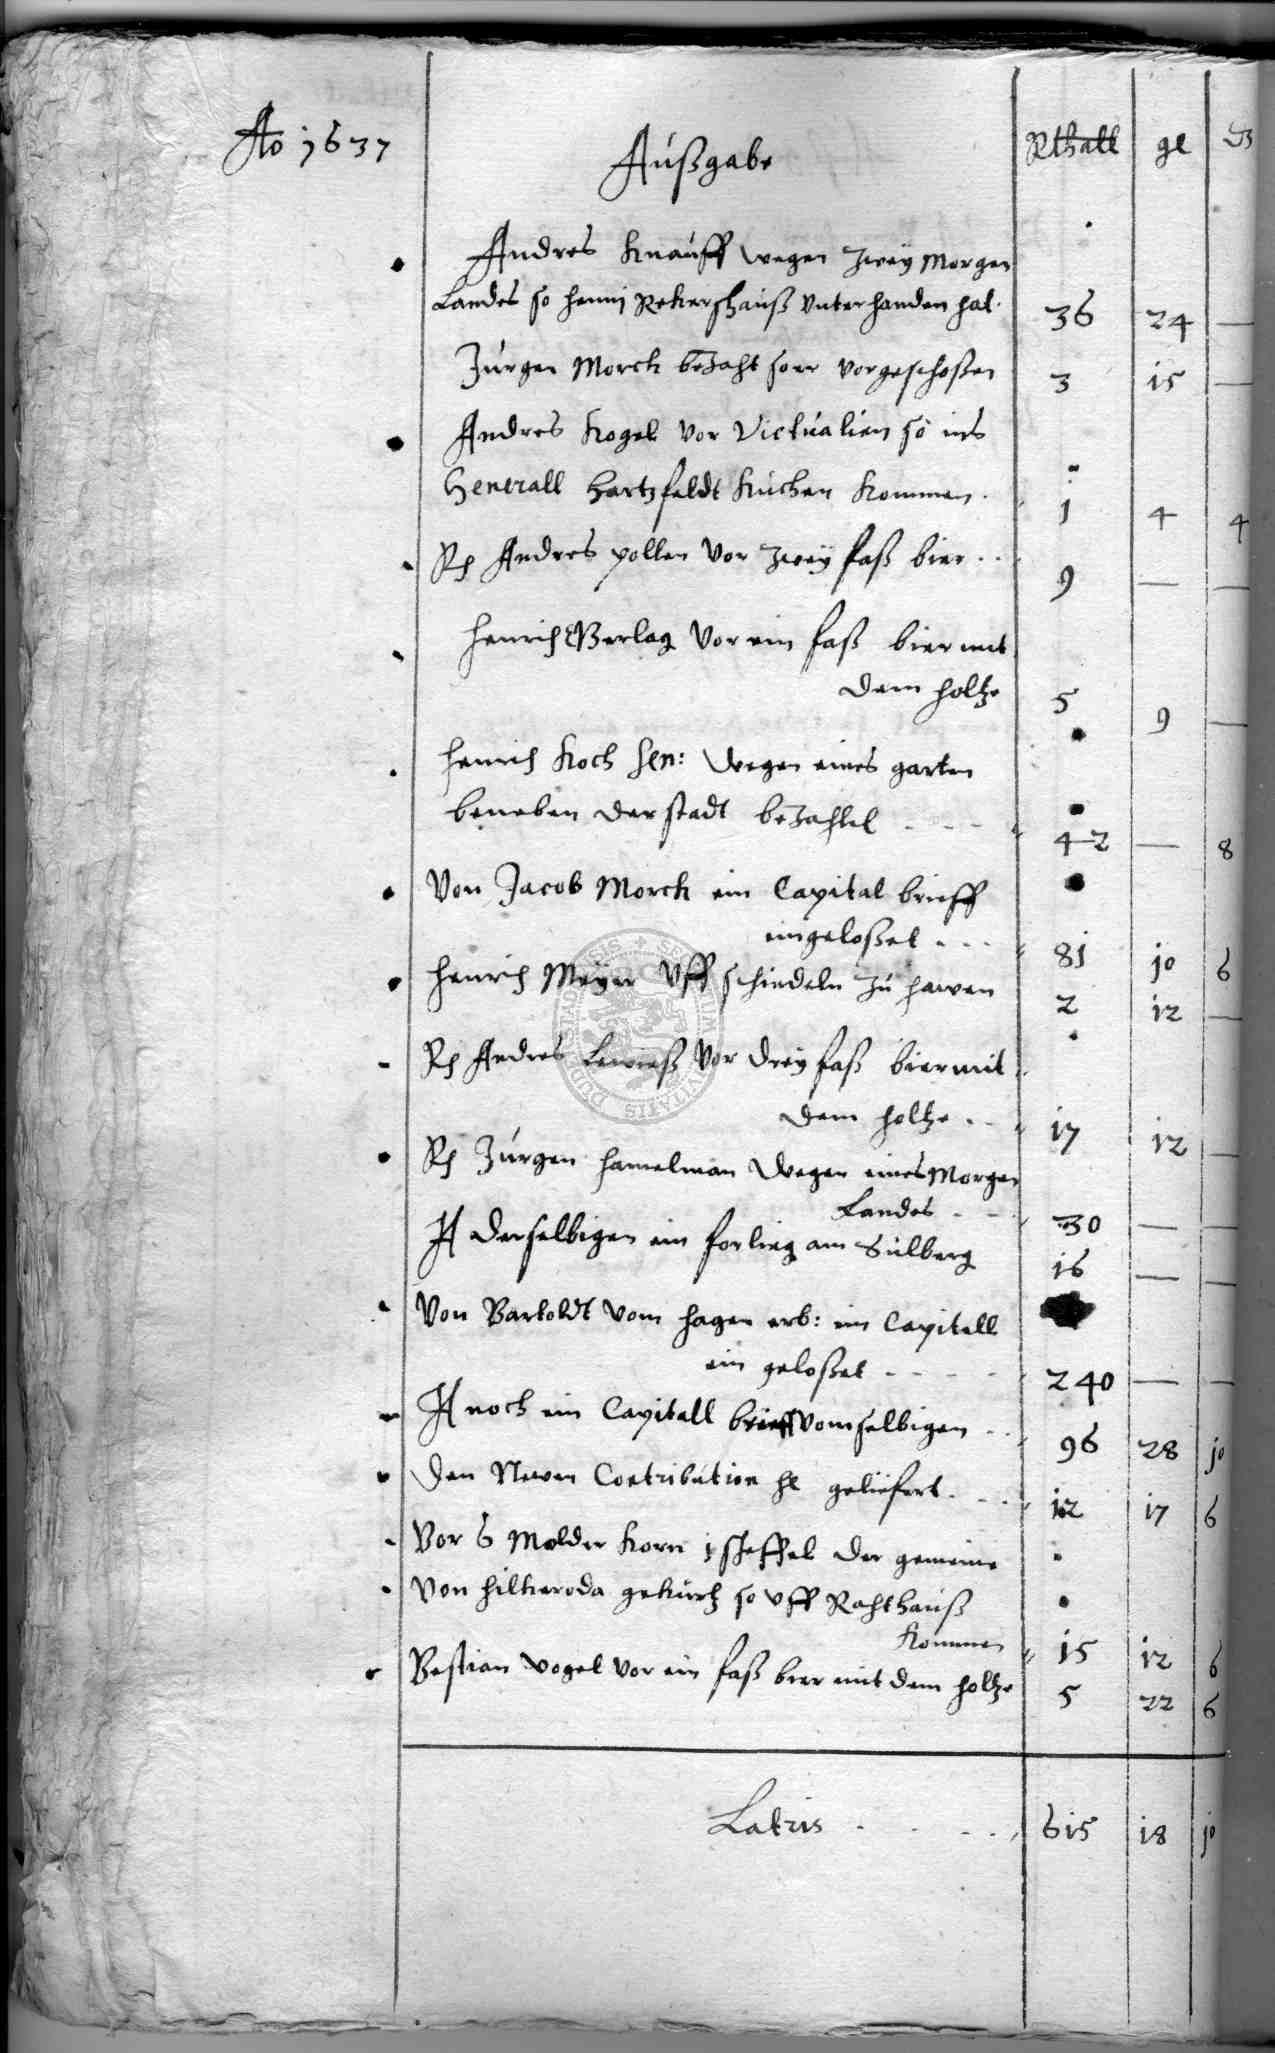 Ao 1637
Außgabe Rthall gl ₰
Andres Knauff wegen zwey Morgen
Landes so henni Rekershauß unterhanden hat. 36 24 —
Jürgen Morck bezaht so er vorgeschoßen 3 15 —
Andres Kogel vor Victualien so ins
Generall Hartzfeldt Küchen kommen. 1 4 4
Andres pollen vor zweÿ faß bier .. 9 — —
Henrich Verlag vor ein faß bier mit
dem holtze 5 9 —
Henrich Koch sen: wegen eines garten
beneben der stadt bezahlet - - - 42 — 8
Von Jacob Morck ein Capital brieff
eingeloßet . . . 81 10 6
Henrich Meÿer uff schindeln zu hawen 2 12 —
Andres Lewieß vor dreÿ faß bier mit
dem holtze . . 17 12 —
Jürgen Hamelman wegen eines Morgen
Landes - - 30 — —
It derselbigen ein forling am Sulberg 16 — —
Von Bartoldt vom Hagen erb: ein Capitall
ein geloßet - - - - - 240 — —
It noch ein Capitall brieff vom selbigen . . 96 28 10
Den Newen Contribution hl geliefert . . . 12 17 6
Vor 6 Molder Korn 1 scheffel der gemeine
von Hilkeroda gekürtz so uff Rahthauß
kommen 15 12 6
Bestian vogel vor ein faß bier mit dem holtze 5 22 6
Latris . . . . . 615 18 10